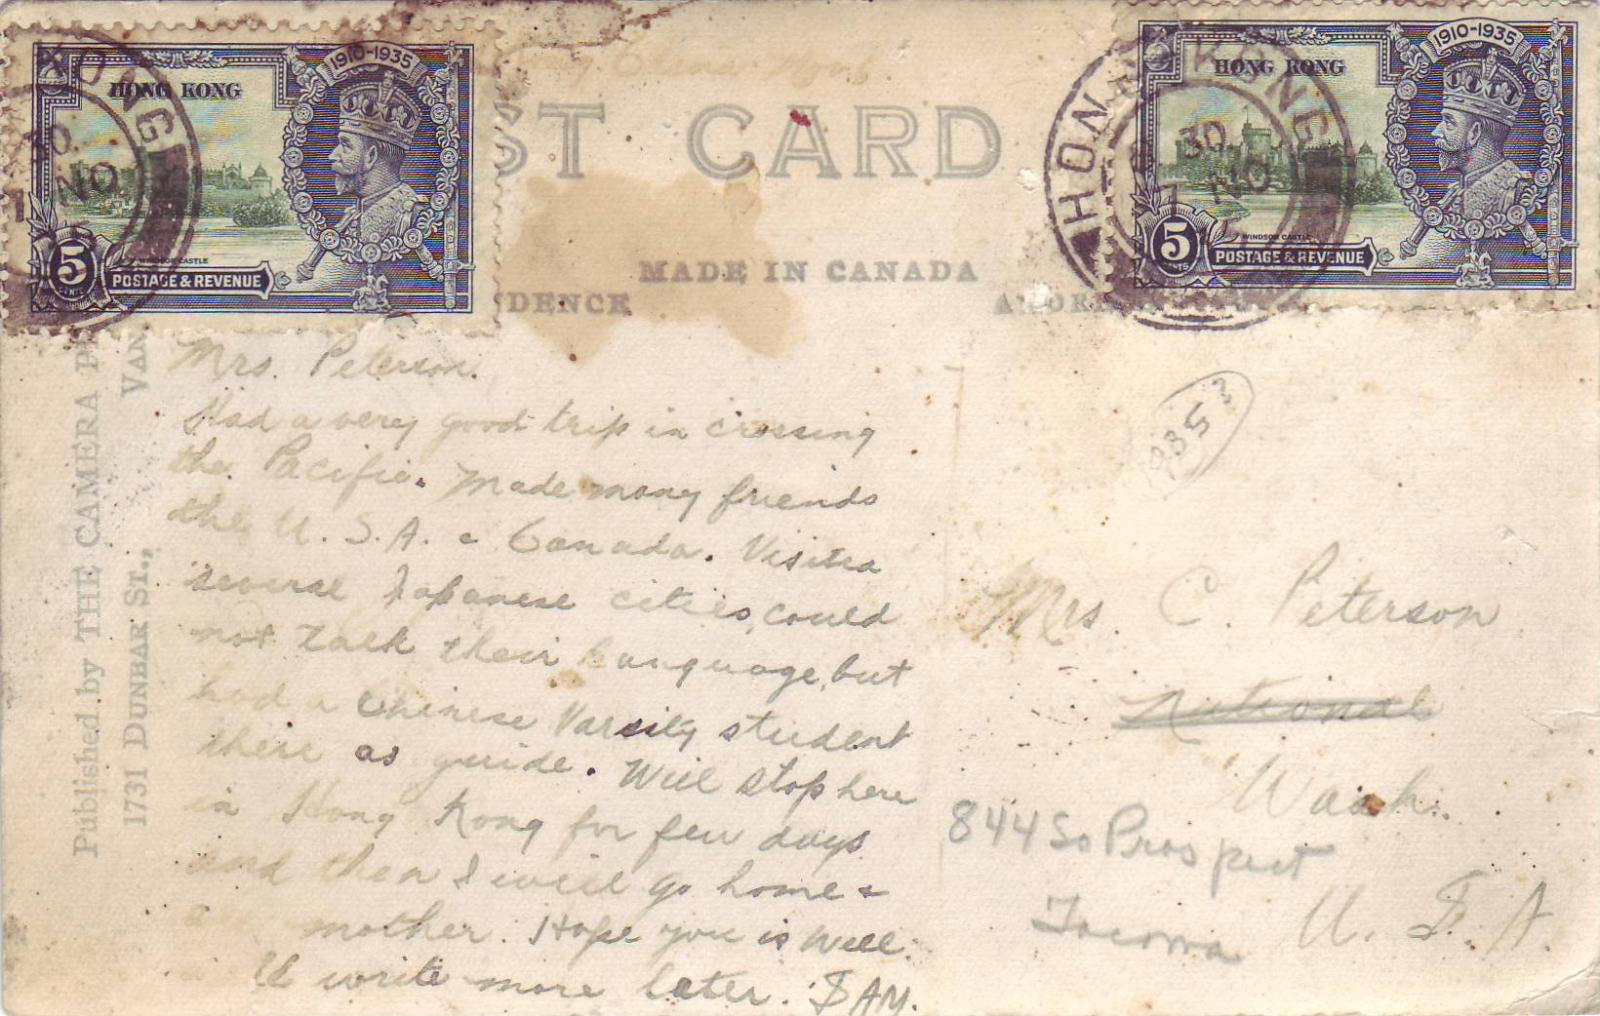 1910-1935
HONG KONG
WINDSOR CASTLE
5
CENTS
POSTAGE & REVENUE
KONG
NO
ST CARD
MADE IN CANADA
DENCE
1910-1935
HONG KONG
WINDSOR CASTLE
5
CENTS
POSTAGE & REVENUE
HONG KONG
30
NO
Published by THE CAMERA
1731 DUNBAR ST., VAN
Mrs. Peterson.
Had a very good trip in crossing
the Pacific. Made many friends
the U.S.A. & Canada. Visited
several Japanese cities, could
not talk their language, but
had a Chinese Varsity student
there as guide. Will stop here
in Hong Kong for few days
and then I will go home &
mother. Hope you is well.
write more later. SAM.
1935?
Mrs. C. Peterson
National
Wash.
844 So Prospect
Tacoma
U. S. A.